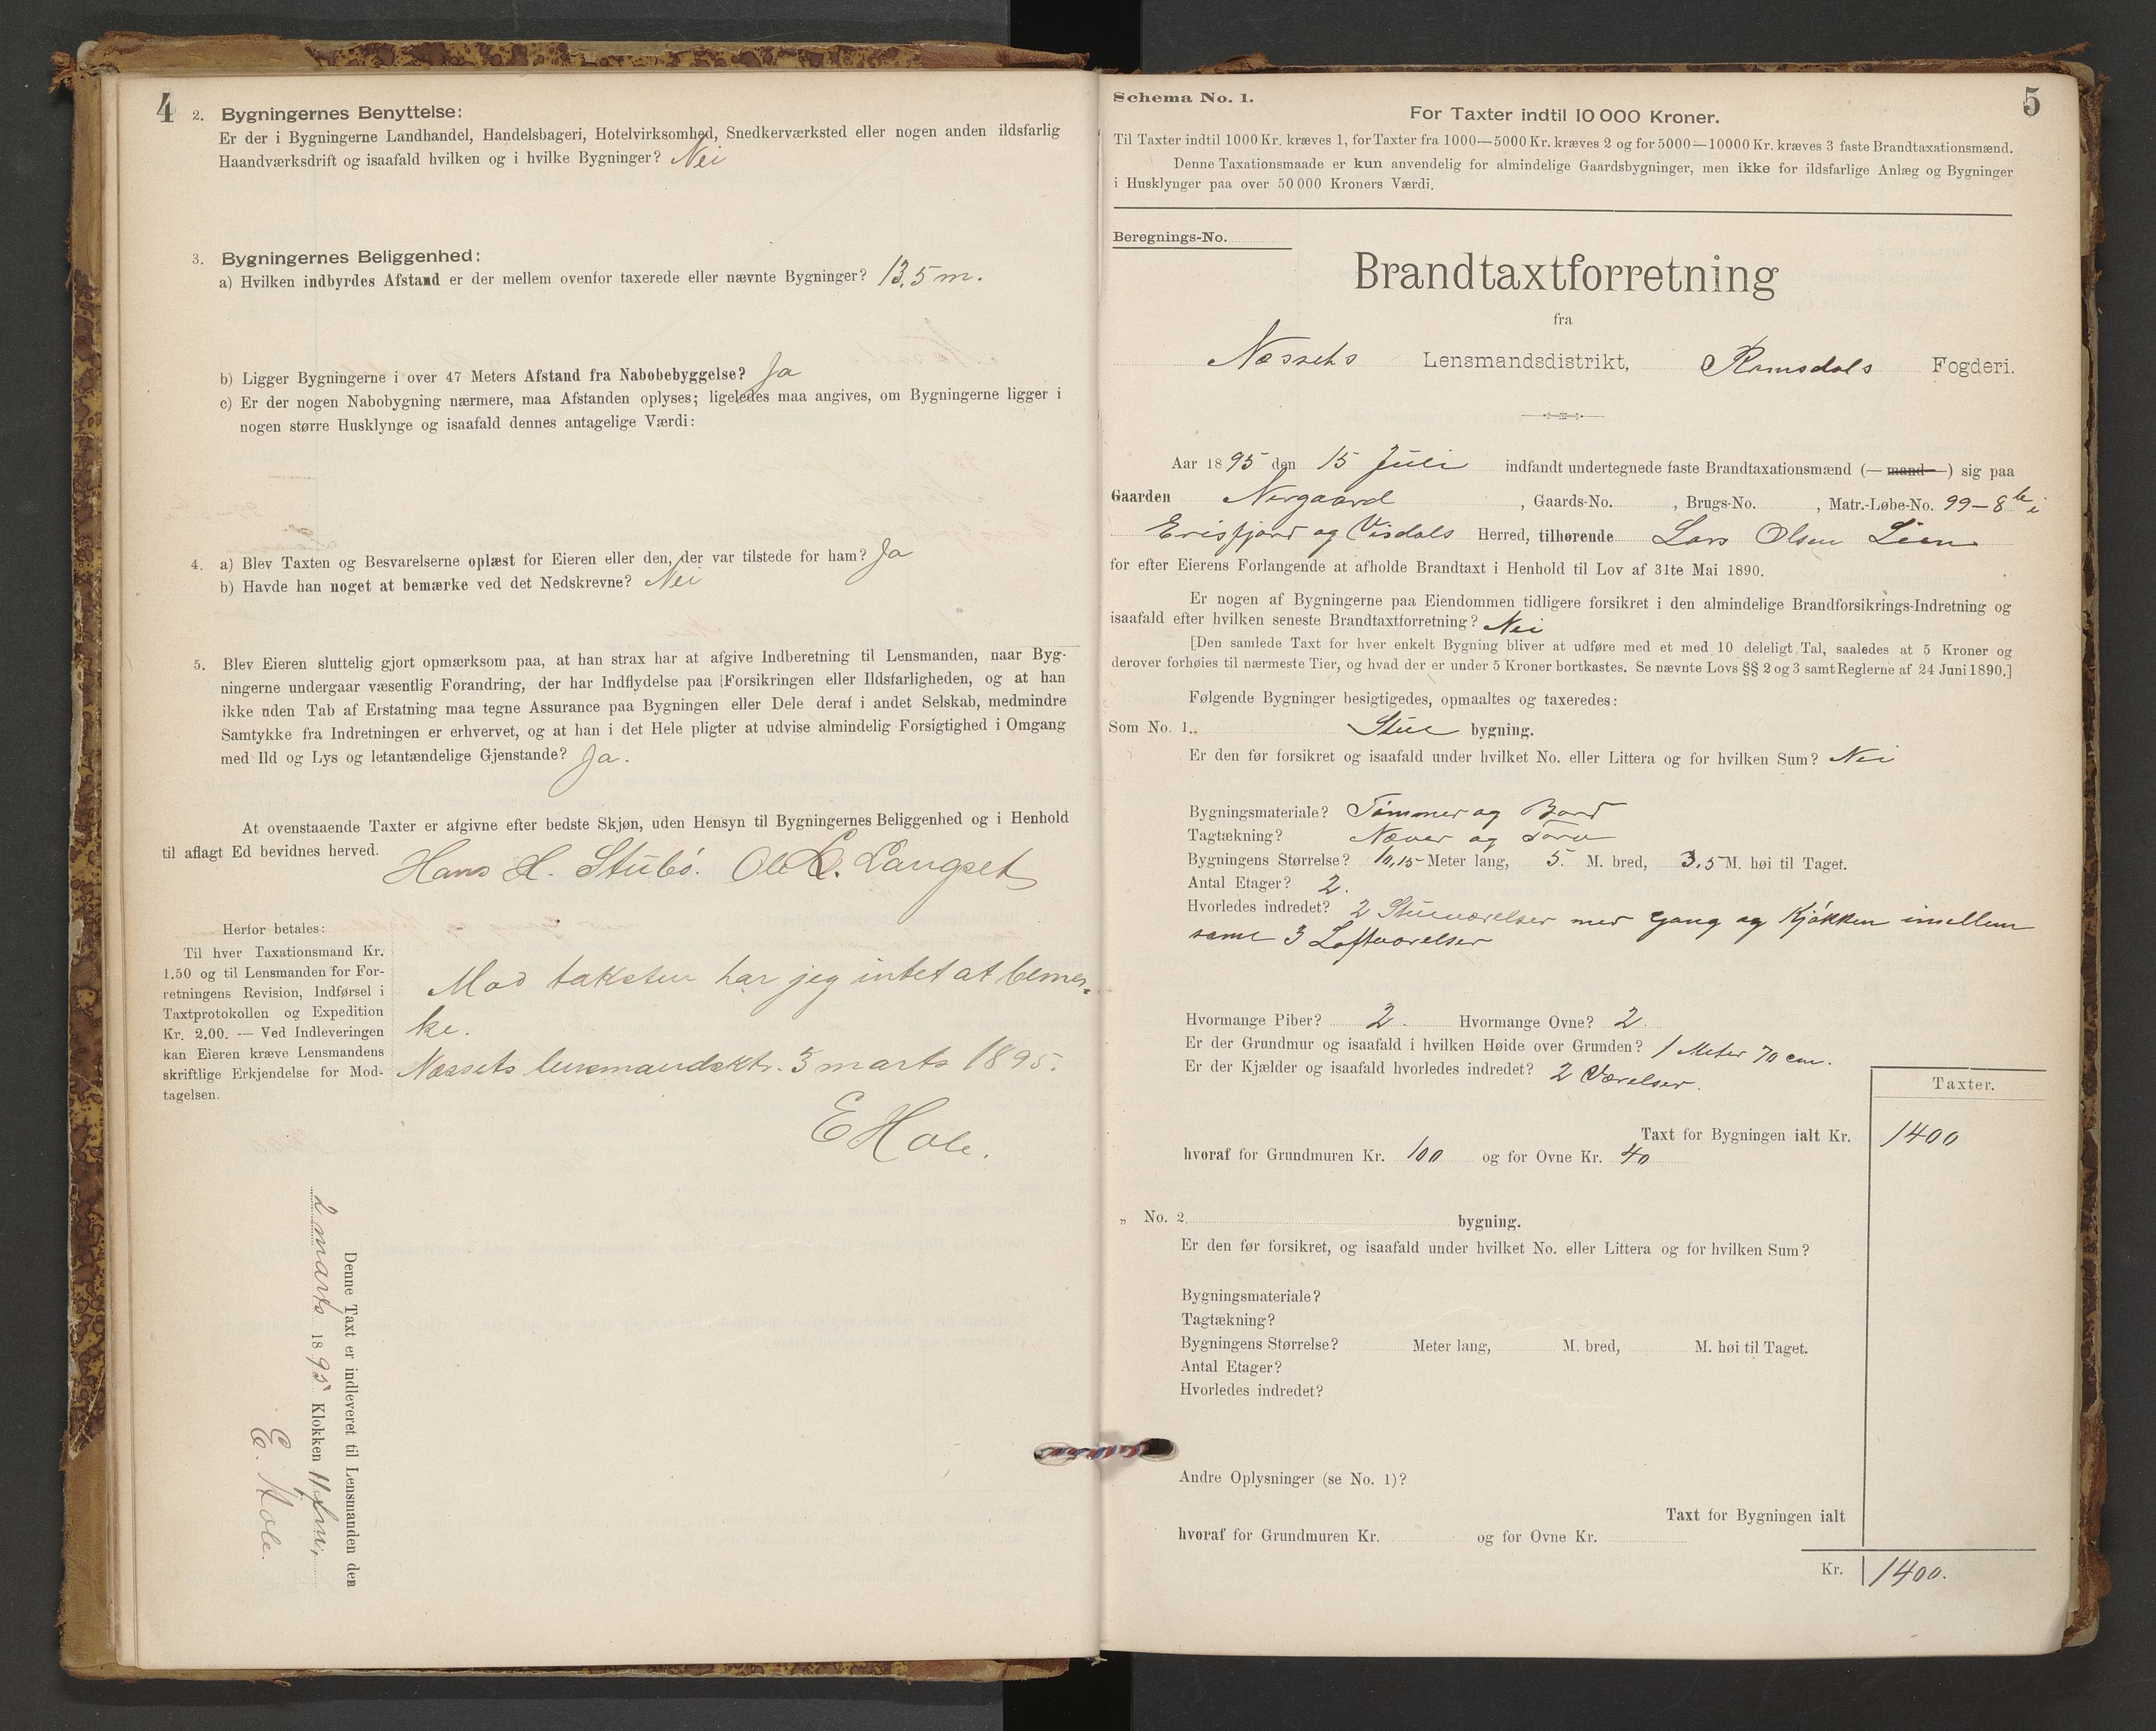 4
2. Bygningernes Benyttelse:
Er der i Bygningerne Landhandel, Handelsbageri, Hotelvirksomhed, Snedkerværksted eller nogen anden ildsfarlig
Haandværksdrift og isaafald hvilken og i hvilke Bygninger? Nei
3. Bygningernes Beliggenhed:
a) Hvilken indbyrdes Afstand er der mellem ovenfor taxerede eller nævnte Bygninger? 13,5 m.
b) Ligger Bygningerne i over 47 Meters Afstand fra Nabobebyggelse? Ja
c) Er der nogen Nabobygning nærmere, maa Afstanden oplyses; ligeledes maa angives, om Bygningerne ligger i
nogen større Husklynge og isaafald dennes antagelige Værdi:
4. a) Blev Taxten og Besvarelserne oplæst for Eieren eller den, der var tilstede for ham? Ja
b) Havde han noget at bemærke ved det Nedskrevne? Nei
5. Blev Eieren sluttelig gjort opmærksom paa, at han strax har at afgive Indberetning til Lensmanden, naar Byg-
ningerne undergaar væsentlig Forandring, der har Indflydelse paa Forsikringen eller Ildsfarligheden, og at han
ikke uden Tab af Erstatning maa tegne Assurance paa Bygningen eller Dele deraf i andet Selskab, medmindre
Samtykke fra Indretningen er erhvervet, og at han i det Hele pligter at udvise almindelig Forsigtighed i Omgang
med Ild og Lys og letantændelige Gjenstande? Ja.
At ovenstaaende Taxter er afgivne efter bedste Skjøn, uden Hensyn til Bygningernes Beliggenhed og i Henhold
til aflagt Ed bevidnes herved.
Hans H. Stubø. Ole L. Langset
Herfor betales:
Til hver Taxationsmand Kr.
1.50 og til Lensmanden for For-
retningens Revision, Indførsel i
Taxtprotokollen og Expedition
Kr. 2.00. — Ved Indleveringen
kan Eieren kræve Lensmandens
skriftlige Erkjendelse for Mod-
tagelsen.
Mod taksten har jeg intet at bemer-
ke.
Næssets lensmandsktr. 3 marts 1895.
E Hole.
Denne Taxt er indleveret til Lensmanden den
2 marts 1895 Klokken 11 fm.
E. Hole.
5
Schema No. 1.
For Taxter indtil 10 000 Kroner.
Til Taxter indtil 1000 Kr. kræves 1, for Taxter fra 1000—5000 Kr. kræves 2 og for 5000—10000 Kr. kræves 3 faste Brandtaxationsmænd.
Denne Taxationsmaade er kun anvendelig for almindelige Gaardsbygninger, men ikke for ildsfarlige Anlæg og Bygninger
i Husklynger paa over 50 000 Kroners Værdi.
Beregnings-No.
Brandtaxtforretning
fra
Næssets Lensmandsdistrikt, Romsdals Fogderi.
Aar 1895 den 15 Juli indfandt undertegnede faste Brandtaxationsmænd (— mand —) sig paa
Gaarden Nergaard, Gaards-No. , Brugs-No. , Matr.-Løbe-No. 99–8 b i
Erisfjord og Visdals Herred, tilhørende Lars Olsen Lien
for efter Eierens Forlangende at afholde Brandtaxt i Henhold til Lov af 31te Mai 1890.
Er nogen af Bygningerne paa Eiendommen tidligere forsikret i den almindelige Brandforsikrings-Indretning og
isaafald efter hvilken seneste Brandtaxtforretning? Nei
[Den samlede Taxt for hver enkelt Bygning bliver at udføre med et med 10 deleligt Tal, saaledes at 5 Kroner og
derover forhøies til nærmeste Tier, og hvad der er under 5 Kroner bortkastes. Se nævnte Lovs §§ 2 og 3 samt Reglerne af 24 Juni 1890.]
Følgende Bygninger besigtigedes, opmaaltes og taxeredes:
Som No. 1. Stue bygning.
Er den før forsikret og isaafald under hvilket No. eller Littera og for hvilken Sum? Nei
Bygningsmateriale? Tømmer og Bord
Tagtækning? Næver og Torv
Bygningens Størrelse? 10,15 Meter lang, 5. M. bred, 3,5 M. høi til Taget.
Antal Etager? 2.
Hvorledes indredet? 2 Stueværelser med Gang og Kjøkken imellem
samt 3 Loftværelser
Hvormange Piber? 2. Hvormange Ovne? 2.
Er der Grundmur og isaafald i hvilken Høide over Grunden? 1 Meter 70 cm.
Er der Kjælder og isaafald hvorledes indredet? 2 Værelser.
Taxter.
Taxt for Bygningen ialt Kr. 1400
hvoraf for Grundmuren Kr. 100 og for Ovne Kr. 40
„ No. 2 bygning.
Er den før forsikret, og isaafald under hvilket No. eller Littera og for hvilken Sum?
Bygningsmateriale?
Tagtækning?
Bygningens Størrelse? Meter lang, M. bred, M. høi til Taget.
Antal Etager?
Hvorledes indredet?
Andre Oplysninger (se No. 1)?
Taxt for Bygningen ialt
hvoraf for Grundmuren Kr. og for Ovne Kr.
Kr. 1400.